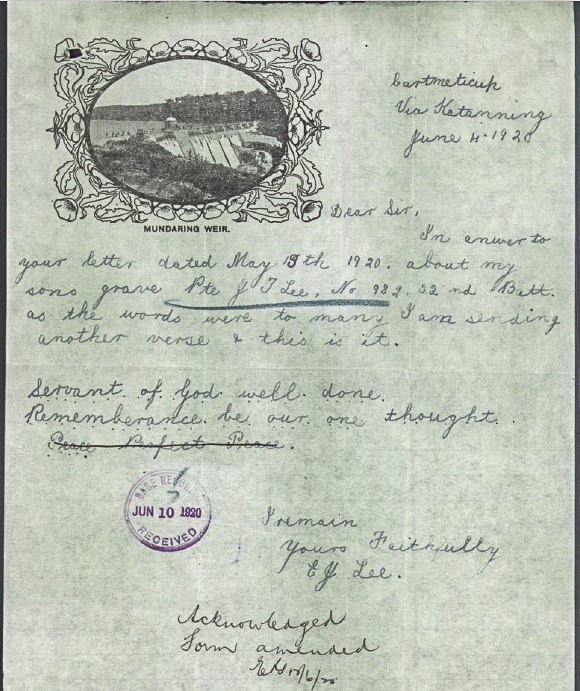 Cartmeticup
Via Katanning
June 4-1920
MUNDARING WEIR.
Dear Sir,
In anwer to
your letter dated May 19th 1920. about my
sons grave Pte J T Lee. No 982. 32 nd Batt.
as the words were to many I am sending
another verse & this is it.
Servant of God well done.
Rememberance be our one thought.
Peace Perfect Peace.
BASE RECORDS
JUN 10 1920
RECEIVED
I remain
Yours Faithfully
E J Lee.
Acknowledged
Form amended
10/6/20